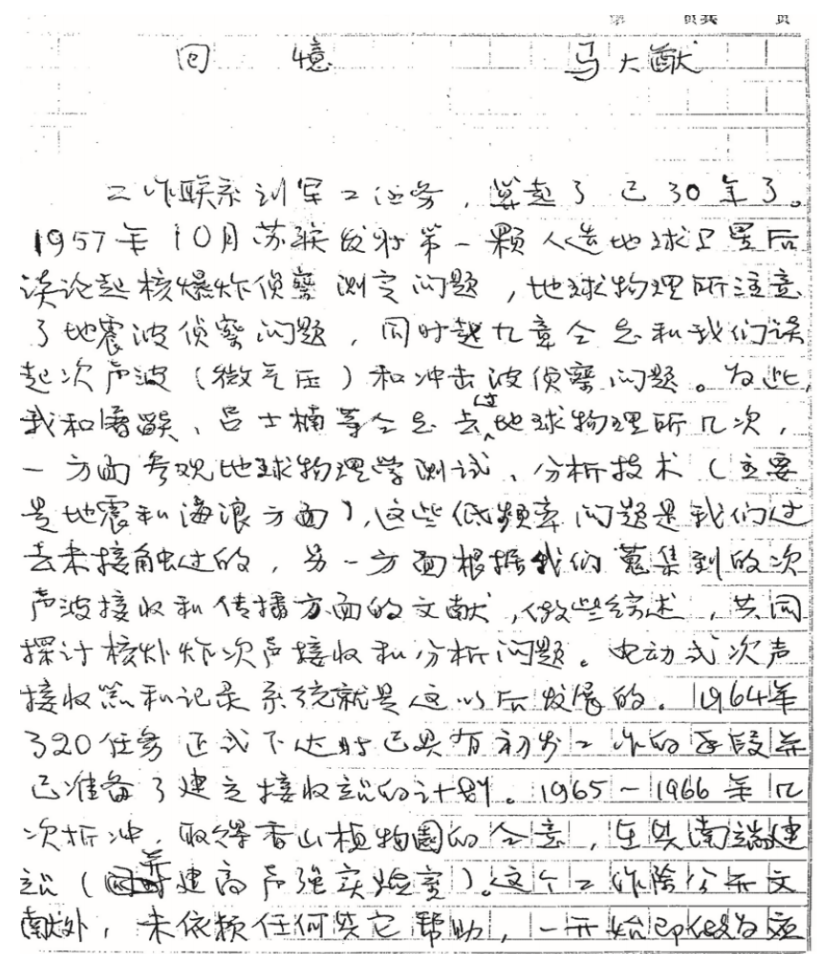 第 页共 页
回憶 马大猷
工作联系到军工任务，算起了已30年了。
1957年10月苏联发射第一颗人造地球卫星后
谈论起核爆炸侦察测定问题，地球物理所注意
了地震波侦察问题，同时赵九章仝志和我们谈
起次声波（微气压）和冲击波侦察问题。为此，
我和 、吕士楠等仝志去过地球物理所几次，
一方面参观地球物理学测试、分析技术（主要
是地震和海浪方面），这些低频率问题是我们过
去未接触过的，另一方面根据我们蒐集到的次
声波接收和传播方面的文献，做些综述，共同
探讨核爆炸次声接收和分析问题。电动式次声
接收器和记录系统就是这以后发展的。1964年
320任务正式下达时已具有初步工作的手段并
已准备了建立接收站的计划。1965～1966年几
次折冲，取得香山植物园的仝意，在其南端建
站（并建高声强实验室）。这个工作除公开文
献外，未依赖任何其它帮助，一开始即 为